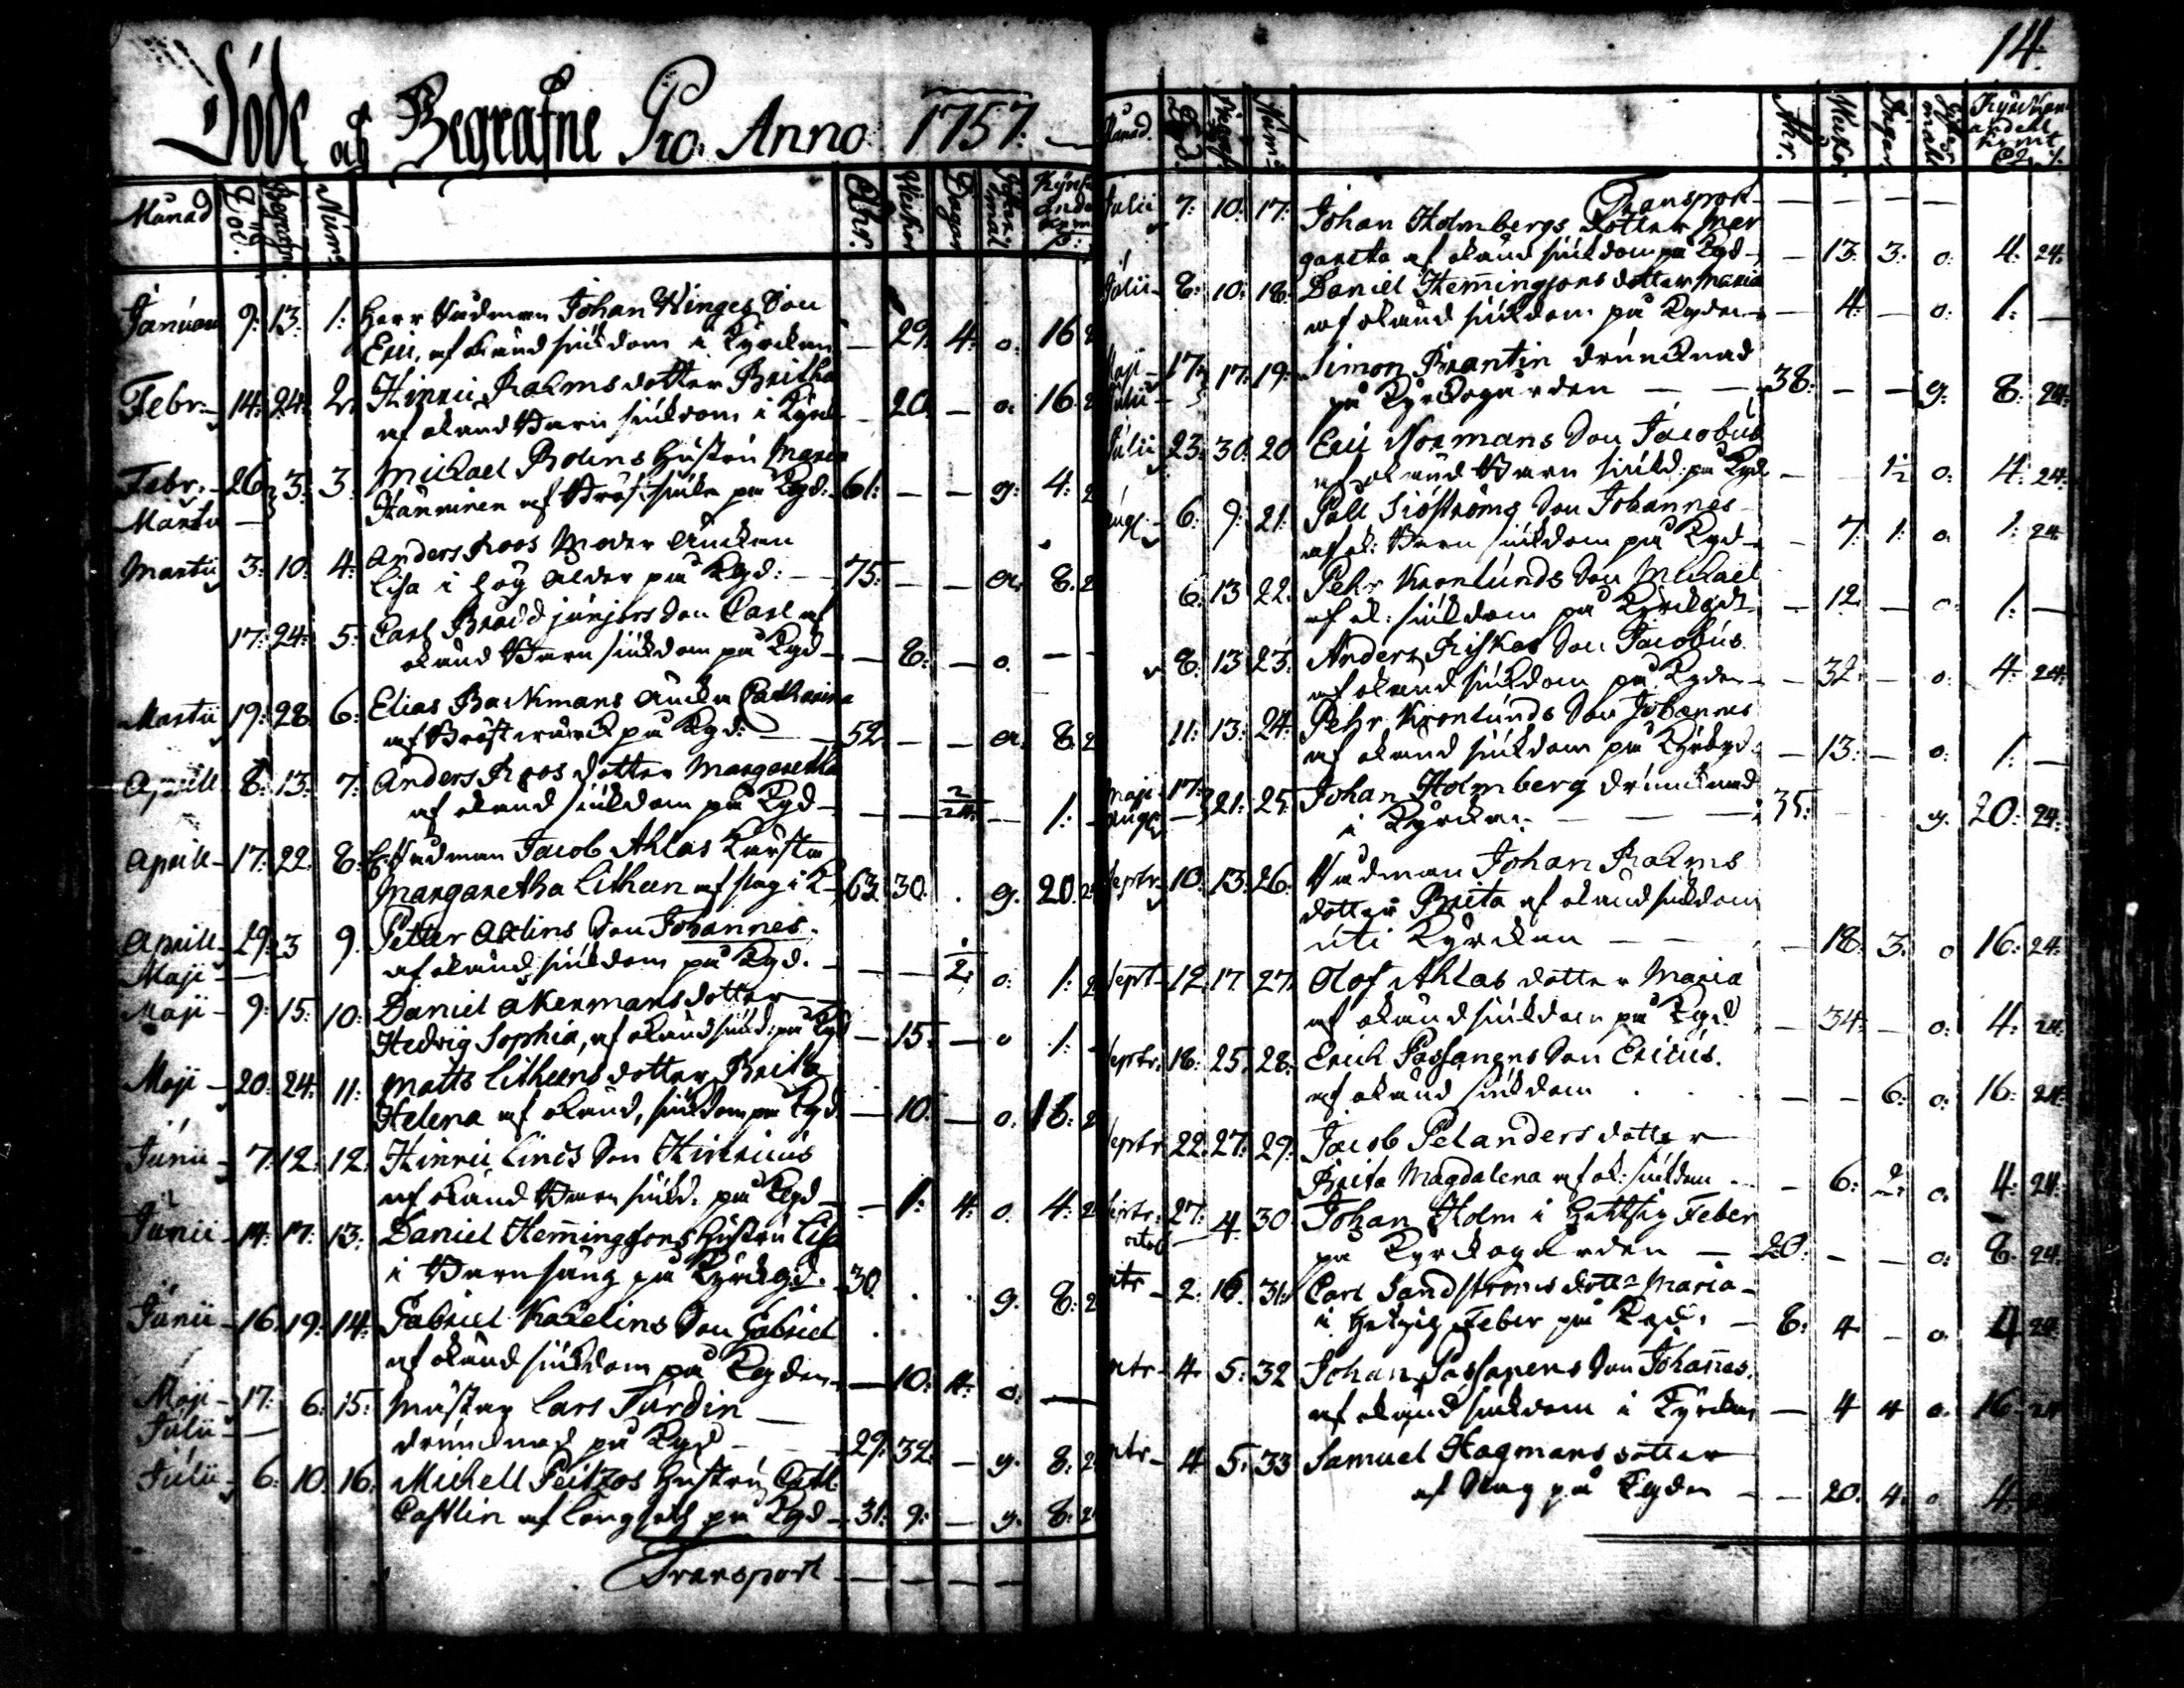 14.
Döde och Begrafne Pro. Anno 1757.
Månad Död. Begrafn. Num. Åhr. Weckor Dagar
Januari 9: 13. 1: Herr Rådman Johan Winges Son
Eric, af okänd siukdom i Kyrckan — 29. 4. o. 16
Febr. 14: 24: 2. Hinric Rahms dotter Britha
af okänd Barn siukdom i Kyrck — 20. — o. 16.
Febr. 26 3. 3. Michael Rolins Hustru Maria
Martii — Hänninen af Bröstsiuka på Kyd: 61: — — g. 4:
Martii 3: 10: 4: Anders Roos Moder Änckan
Lisa i hög ålder på Kyd: — 75: — — 8.
17: 24: 5: Carl Bradd junjors Son Carl af
okänd Barn siukdom på Kyd — — 8. — o. —
Martii 19: 28 6: Elias Backmans Äncka Catharina
af på Kyd: — 52. — — 8.
Aprill 8: 13. 7: Anders Roos dotter Margaretha
af okänd siukdom på Kyd — — — 2/24 — 1:
Aprill 17: 22. 8: Rådman Jacob Ahlas
Margaretha Litheen af slag i K 63. 30. . g. 20.
Aprill 29: 3 9. Petter Son Johannes.
Maji — af okänd siukdom på Kyd. — — — 1/2. o: 1:
Maji 9: 15: 10: Daniel Akermans dotter
Hedvig Sophia, af okänd siukd: på Kyd — 15. — o 1:
Maji 20: 24: 11: Matts Litheens dotter Brita
Helena af okänd, siukdom på Kyd. — 10. — o. 18.
Junii 7: 12: 12. Hinric Linds Son Hinricus
af okänd Barn siukd. på Kyd — 1: 4: o. 4:
Junii 14: 17: 13: Daniel Hemingssons Hustru Lisa
i Barnsäng på Kyrckgd. 30. . . g. 8:
Junii 16. 19: 14: Gabriel Karelins Son Gabriel
af okänd siukdom på Kyden — 10: 4: o. —
Maji 17: 6: 15: Mäster Lars Turdin —
Julii — druncknad på Kyd — 29: 32. — g. 8:
Julii 6: 10: 16: Michell Peitzos Hustru Cath.
Castlin af på Kyd — 31: 9: — g. 8:
Transport — — — —
Månad. Död. Begraf. Num: Åhr. Weckor Dagar
Transport — — — —
Julii 7: 10: 17: Johan Holmbergs dotter Mar
gareta af okänd siukdom på Kyd — 13. 3. o: 4: 24.
Julii 8: 10: 18: Daniel Hemingsons dotter Maria
af okänd siukdom på Kyden — — 4: — o: 1: —
Maji 17: 17: 19: Simon Brantin druncknad
Julii på Kyrckogården — — 38: — — g: 8: 24:
Julii 23: 30: 20 Eric Normans Son Jacobus
af okänd Barn siukd: på Kyd — — 1/2 o: 4: 24:
Aug: 6: 9: 21: Påll Siöströms Son Johannes
af ok: Barn siukdom på Kyd — — 7: 1: o. 1: 24
6: 13 22: Pehr Kronlunds Son Michael
af ok: siukdom på Kyrckgd — — 12. — o: 1: —
8: 13 23: Anders Riskas Son Jacobus
af okänd siukdom på Kyden — — 32: — o: 4: 24:
11: 13: 24: Pehr Kronlunds Son Johannes
af okänd siukdom på Kyrkgd: — 13: — o: 1: —
Maji 17: 21: 25: Johan Holmberg druncknad
Aug — i Kyrckan — — 35: g. 20: 24:
Septr. 10: 13: 26: Rådman Johan Rahms
dotter Brita af okänd siukdom
uti Kyrckan — — — 18. 3. o 16: 24:
Sept 12: 17: 27: Olof Ahlas dotter Maria
af okänd siukdom på Kyd — 34: — o: 4: 24
Septr. 18: 25: 28: Erich Passanens Son Ericus.
af okänd siukdom . . — — 6: o: 16: 24:
Septr 22: 27: 29: Jacob Pelanders dotter
Brita Magdalena af ok: siukdom — — 6: 2. o. 4: 24:
Septr: 27: 4 30: Johan Holm i hettsig Feber
octob på Kyrckogården — 20: — — o: 8: 24:
2: 16: 31: Carl Sandströms dotter Maria
i hetzig Feber på Kyd: — 8: 4 — o. 4 24
4. 5: 32 Johan Passanens Son Johannes.
af okänd siukdom i Kyrckan — 4 4 o. 16 24
4 5: 33 Samuel Hagmans dotter
af Slag på Kyden — — 20. 4. o 4: